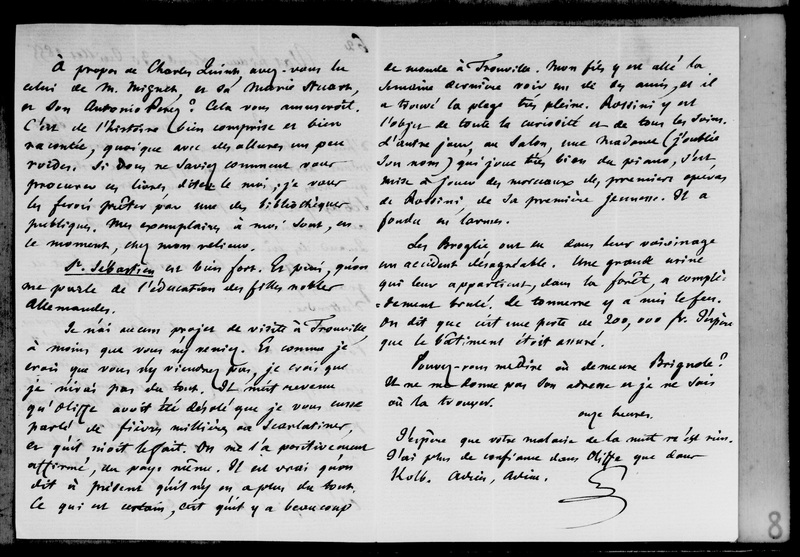 À propos de Charles Quint, avez-vous lu
celui de M. Mignet, et sa Marie Stuart,
et son Antonio Perez? Cela vous amuseroit.
C'est de l'histoire bien comprise et bien
racontée, quoique avec des allures un peu
roides. Si vous ne saviez comment vous
procurer ces livres, dites le moi; je vous
les ferois prêter par une des bibliothèques
publiques. Mes exemplaires à moi sont, en
ce moment, chez mon relieur.
St Sébastien est bien fort. Et puis, qu'on
me parle de l'éducation des filles nobles
Allemandes.
Je n'ai aucun projet de visite à Trouville,
à moins que vous n'y veniez. Et comme je
crois que vous n'y viendrez pas, je crois que
je n'irai pas du tout. Il m'est revenu
qu'Oliffe avoit été désolé que je vous eusse
parlé de fièvres milliaires ou scarlatines,
et qu'il nioit le fait. On me l'a positivement
affirmé, du pays même. Il est vrai qu'on
dit à présent qu'il n'y en a plus du tout.
Ce qui est certain, c'est qu'il y a beaucoup
de monde à Trouville. Mon fils y est allé la
semaine dernière voir un de ses amis, et il
a trouvé la plage très pleine. Rossini y est
l'objet de toute la curiosité et de tous les soins.
L'autre jour, au Salon, une Madame (j'oublie
son nom) qui joue très bien du piano, s'est
mise à jouer des morceaux des premiers opéras
de Rossini, de sa première jeunesse. Il a
fondu en larmes.
Les Broglie ont eu dans leur voisinage
un accident désagréable. Une grande usine
qui leur appartient, dans la forêt, a complè-
=tement brulé. Le tonnerre y a mis le feu.
On dit que c'est une perte de 200,000 fr. J'espère
que le bâtiment étoit assuré.
Pouvez-vous me dire où demeure Brignole?
Il ne me donne pas son adresse et je ne sais
où la trouver.
onze heures.
J'espère que votre malaise de la nuit n'est rien.
J'ai plus de confiance dans Oliffe que dans
Kolb. Adieu, Adieu.
8